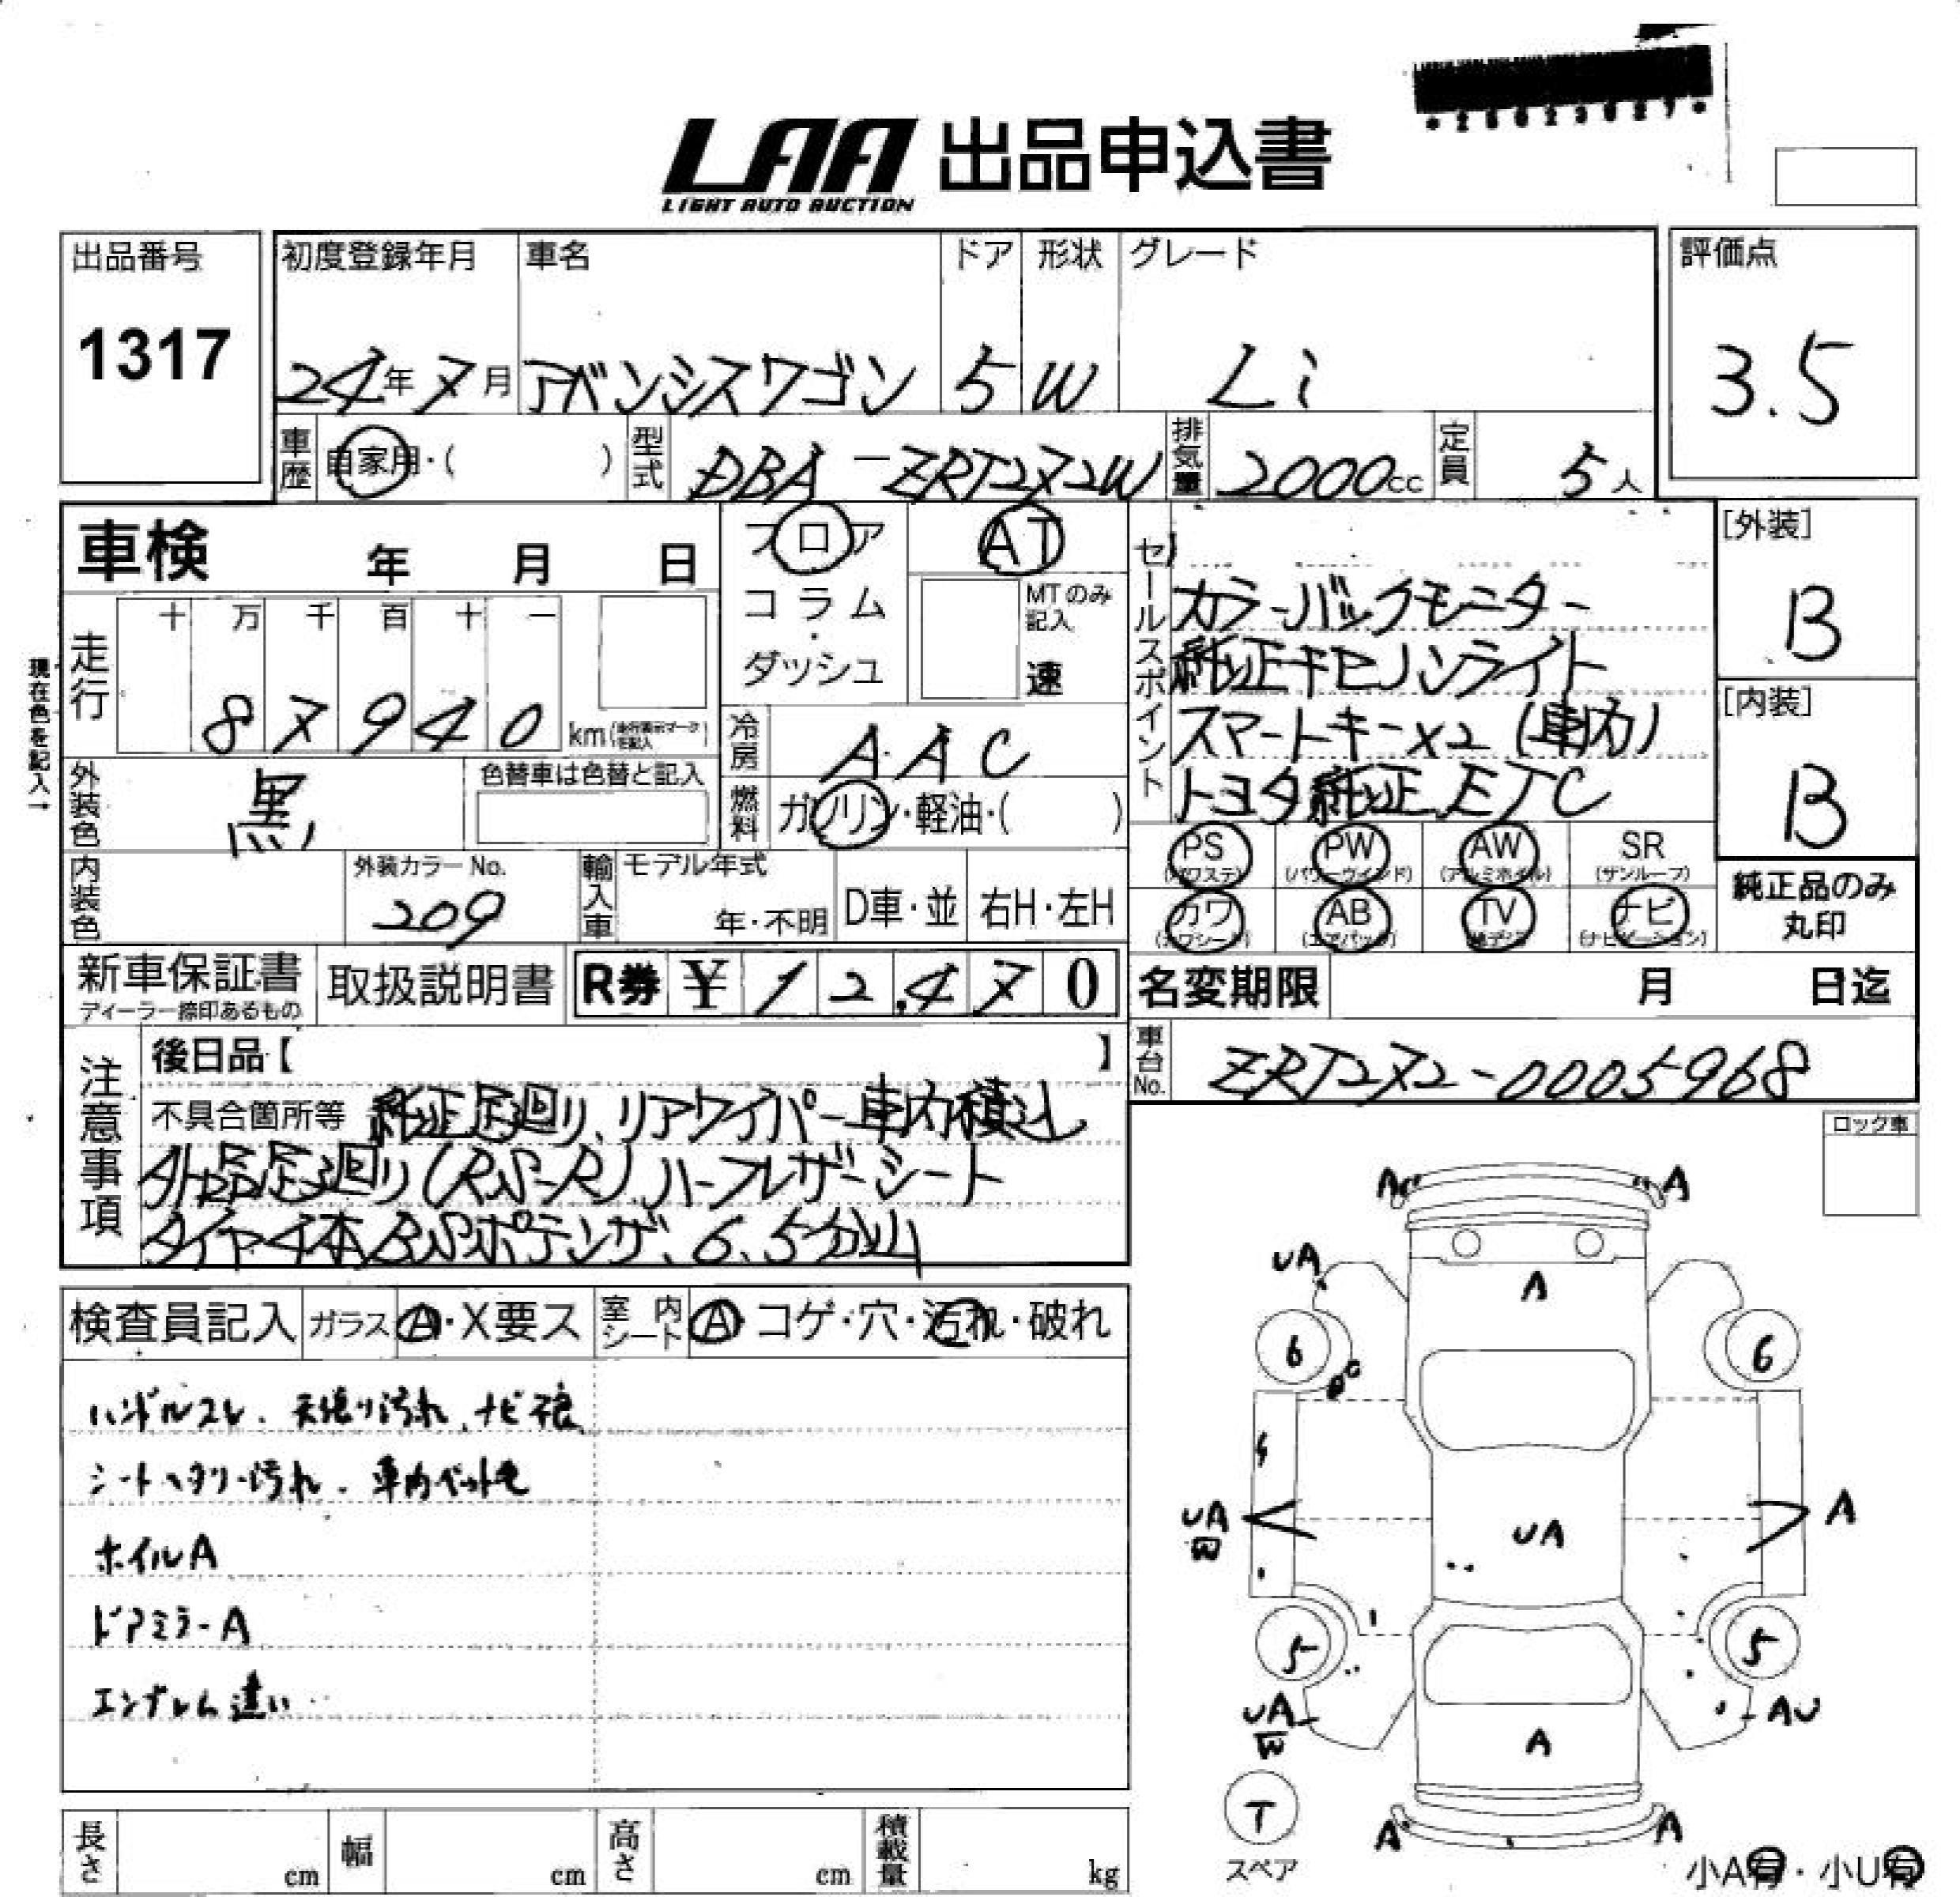 LAA 出品申込書
LIGHT AUTO AUCTION
出品番号
1317
初度登録年月 車名 ドア 形状 グレード
24年7月 アベンシスワゴン 5 W Li
評価点
3.5
車歴 自家用・( ) 型式 DBA-ZRT272W 排気量 2000cc 定員 5人
車検 年 月 日
フロア
コラム
・
ダッシュ
AT
MTのみ記入
速
走行 十 万 千 百 十 一
87940 km
現在色を記入→
冷房 AAC
外装色 黒 色替車は色替と記入
燃料 ガソリン・軽油・( )
セールスポイント
カラーバックモニター
純正キセノンライト
スマートキーx2 (車内)
トヨタ純正ETC
[外装]
B
[内装]
B
PS (パワステ) PW (パワーウインド) AW (アルミホイル) SR (サンルーフ)
カワ (カワシート) AB (エアバッグ) TV (地デジ) ナビ (ナビゲーション)
純正品のみ
丸印
内装色 外装カラーNo. 209
輸入車 モデル年式 年・不明 D車・並 右H・左H
新車保証書
ディーラー捺印あるもの
取扱説明書 R券 ¥12,470
名変期限 月 日迄
車台No. ZRT272-0005968
注意事項
後日品【 】
不具合箇所等 純正足廻り、リアワイパー車内積込
外品足廻り(RS-R)ハーフレザーシート
タイヤ4本BSポテンザ、6.5分山
ロック車
検査員記入 ガラス A・X要ス 室内シート A・コゲ・穴・汚れ・破れ
ハンドルスレ、天張り汚れ、ナビ不良
シートヘタリ・汚れ、車内ペット毛
ホイルA
ドアミラーA
エンブレム違い
A A
UA
A
6 6
UA
W
UA
A
5 5
UA
W
A
AU
T
スペア
A A
小A有・小U有
長さ cm 幅 cm 高さ cm 積載量 kg